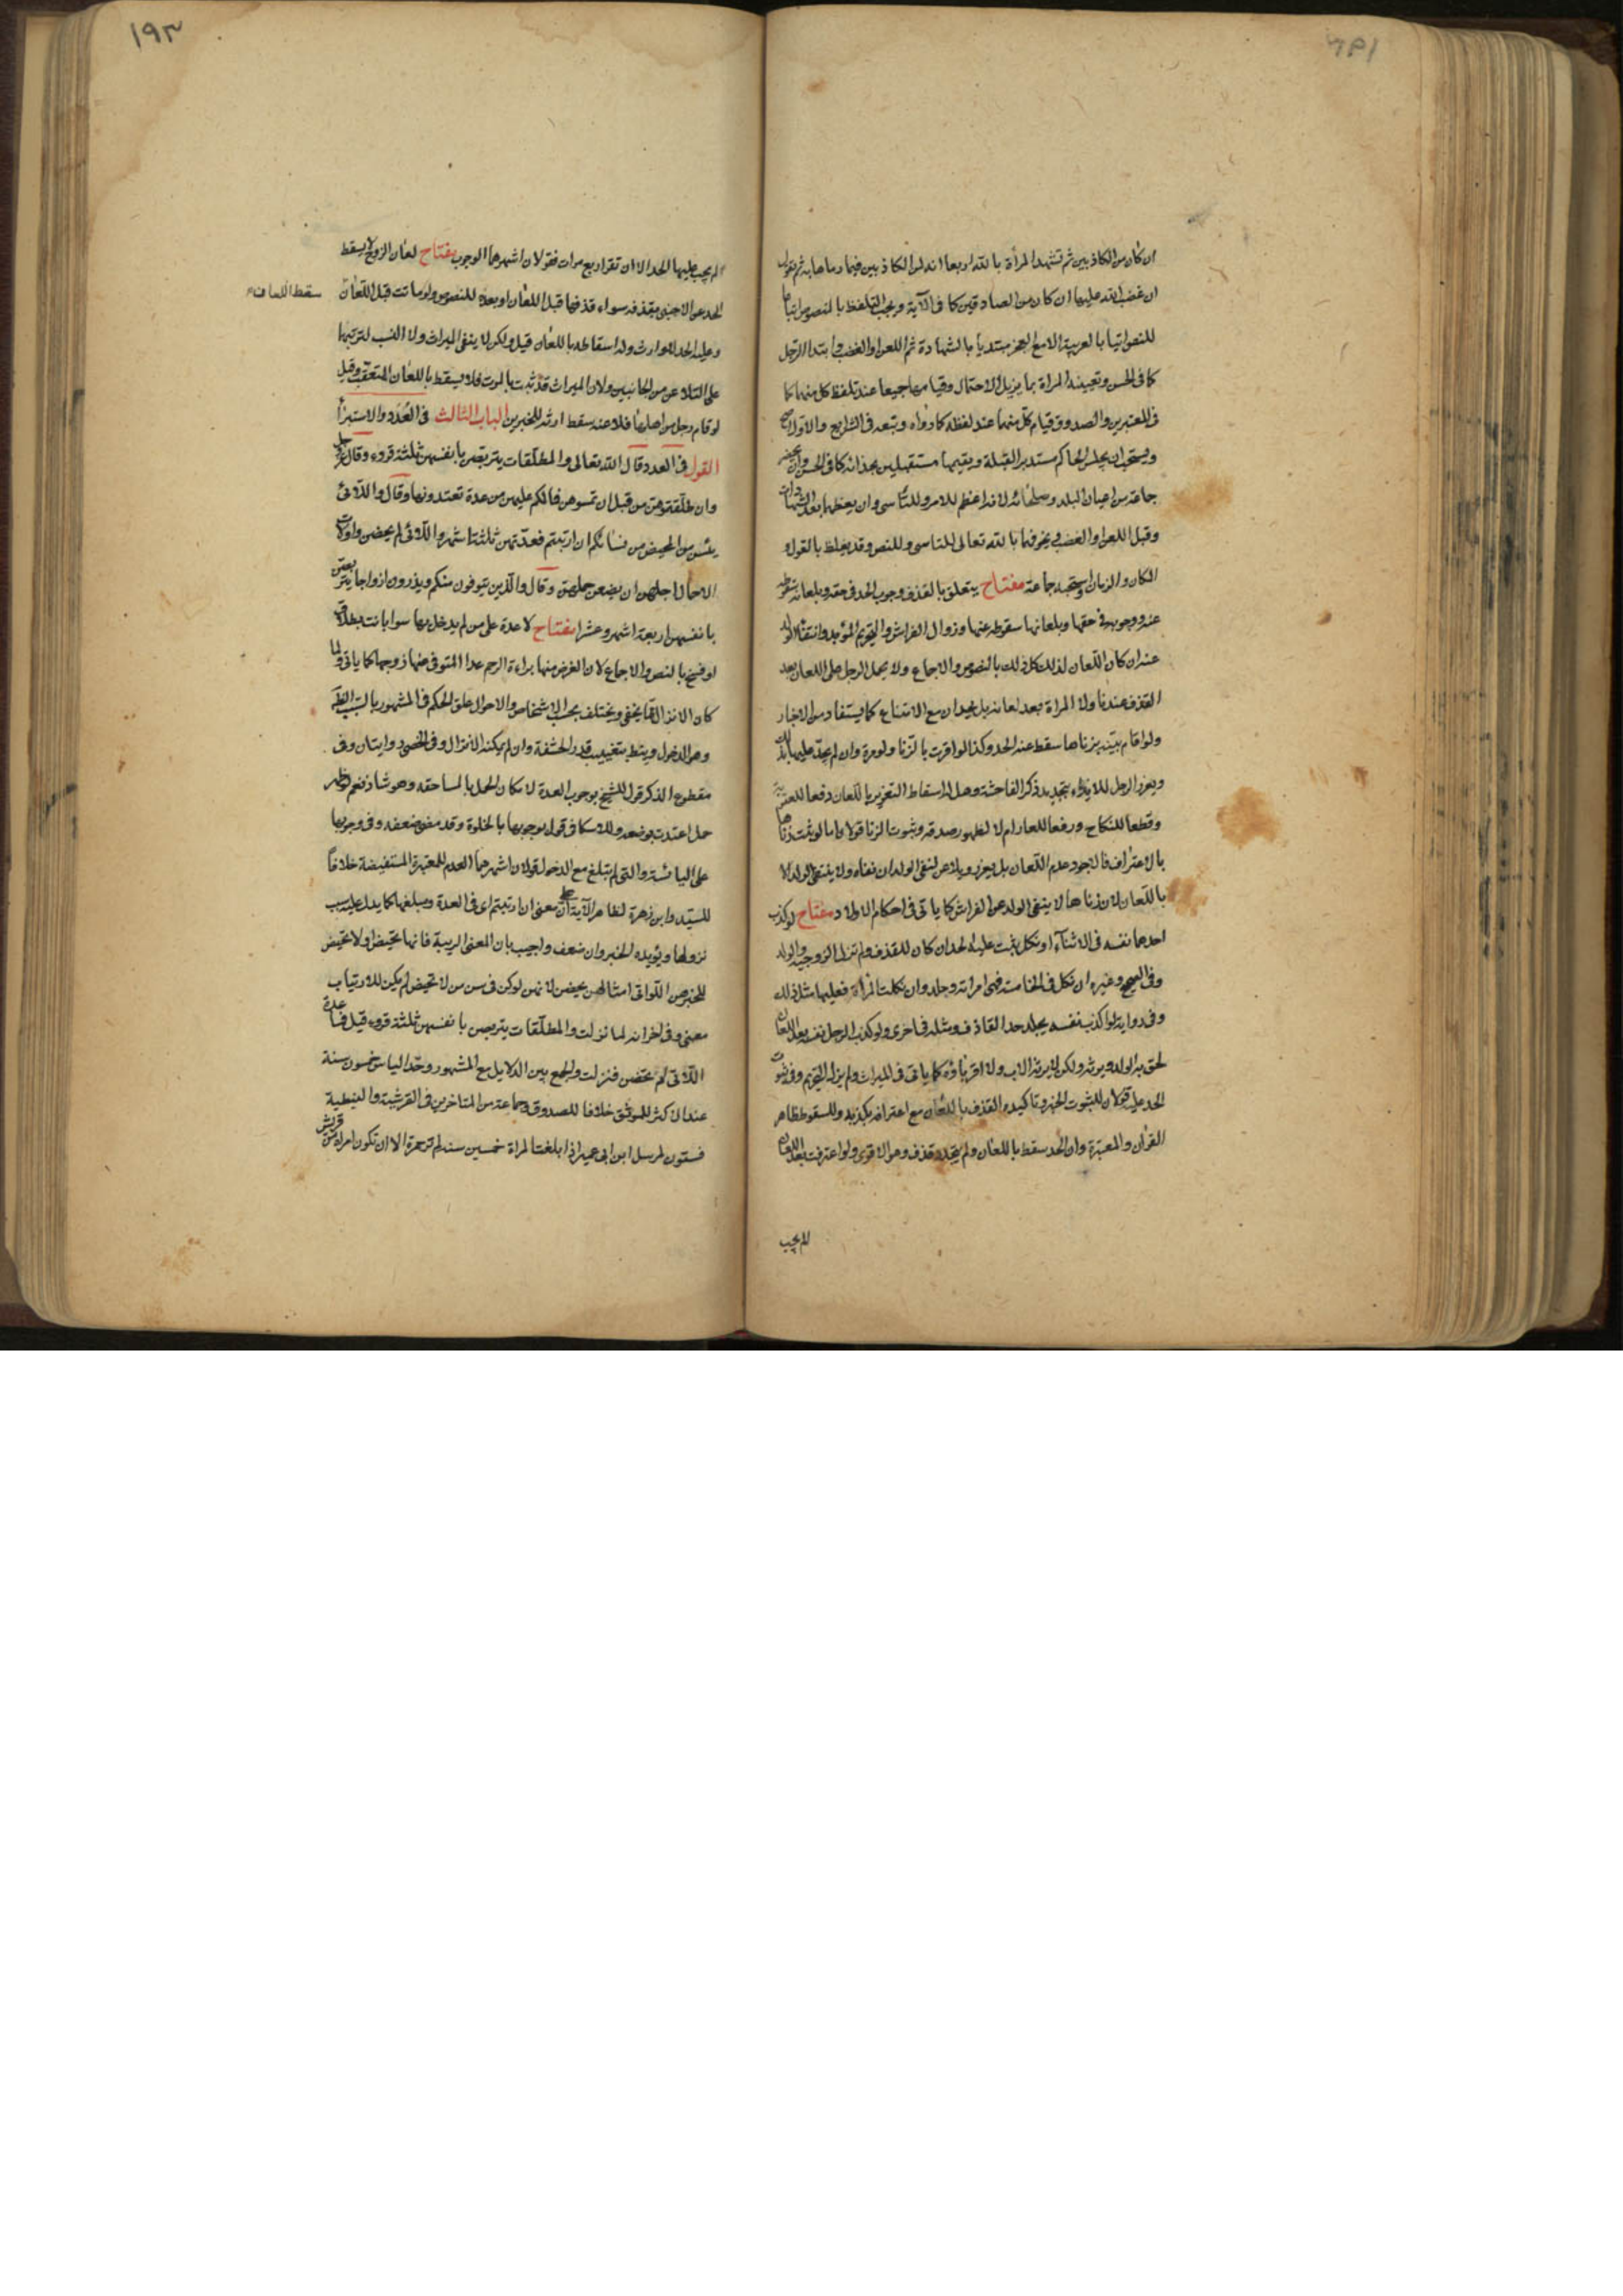 ان كان من الكاذبين ثم تشهد المرأة بالله اربعا انه لمن الكاذبين فيما رماها به ثم تقول
ان غضب الله عليها ان كان من الصادقين كما فى الآية ويجب التلفظ بالمنصوص اتباعا
للنص اتيا بالعربية الا مع العجز مبتديا بالشهادة ثم اللعن او الغضب وابتدا الرجل
كما فى الحسن وتعيينه المراة بما يزيل الاحتمال وقيامهما جميعا عند تلفظ كل منهما كما
فى المعتبرين والصدوق قيام كل منهما عند لفظه كما رواه وتبعه فى الشرايع والاول اصح
ويستحب ان يجلس الحاكم مستدبر القبلة ويقيمها مستقبلين بحذائه كما فى الحسن وان يحضر
جماعة من اعيان البلد وصلحائه لانه اعظم للامر وللتاسى وان يعظهما بعد الشهادات
وقبل اللعن او الغضب يخوفهما بالله تعالى للتاسى وللنص وقد يغلظ بالقول و
المكان والزمان استحبه جماعة مفتاح يتعلق بالقذف وجوب الحد فى حقه وبلعانه سقوطه
عنه ووجوبه فى حقها وبلعانها سقوطه عنها وزوال الفراش والتحريم المؤبد وانتفاء الولد
عنه ان كان اللعان لذلك كل ذلك بالنصوص والاجماع ولا يحمل الرجل على اللعان بعد
القذف عندنا ولا المراة بعد لعانه بل يحدان مع الامتناع كما يستفاد من الاخبار
ولو اقام بينة بزناها سقط عنه الحد وكذا لو اقرت بالزنا ولو مرة وان لم يحد عليها بذلك
ويعزر الرجل للايذاء بتجديد ذكر الفاحشة وهل له اسقاط التعزير باللعان دفعا للعقوبة
وقطعا للنكاح ورفعا للعار ام لا لظهور صدقه وثبوت الزنا قولان اما لو ثبت زناها
بالاعتراف فالاجود عدم اللعان بل يعزر ويلاعن لنفى الولد ان نفاه ولا ينتفى الولد الا
باللعان لان زناها لا ينفى الولد عن الفراش كما ياتى فى احكام الاولاد مفتاح لو كذب
احدهما نفسه فى الاثناء او نكل يثبت عليه الحد ان كان للقذف ولم تزل الزوجية والولد
وفى الصحيح وغيره ان نكل فى الخامسة فهى امراته وجلد وان نكلت المرأة فعليها مثل ذلك
وفى رواية لو اكذب نفسه يجلد حد القاذف ومثله فى اخرى ولو كذب الرجل نفسه بعد اللعان
لحق به الولد ويرثه ولكن لا يرثه الاب ولا اقرباؤه كما ياتى فى الميراث ولم يزل التحريم وفى ثبوت
الحد عليه قولان للثبوت الخبر وتاكيده القذف باللعان مع اعترافه بكذبه وللسقوط ظاهر
القرآن والمعتبرة وان الحد سقط باللعان ولم يتجدد قذف وهو الاقوى ولو اعترفت بعد اللعان
لم يجب
١٩٣
لم يجب عليها الحد الا ان تقر اربع مرات فقولان اشهرهما الوجوب مفتاح لعان الزوج لا يسقط
الحد عن الاجنبى بقذفه سواء قذفها قبل اللعان او بعده للنصوص ولو ماتت قبل اللعان
سقط اللعان
وعليه الحد للوارث وله اسقاطه باللعان قيل ولكن لا ينفى الميراث ولا النسب لترتبهما
على التلاعن من الجانبين ولان الميراث قد ثبت بالموت فلا يسقط باللعان المتعقب وقيل
لو قام رجل من اهلها فلاعنه سقط ارثه للخبرين الباب الثالث فى العدد والاستبراء
القول فى العدد قال الله تعالى والمطلقات يتربصن بانفسهن ثلثة قروء وقال عز وجل
وان طلقتموهن من قبل ان تمسوهن فما لكم عليهن من عدة تعتدونها وقال واللائى
يئسن من المحيض من نسائكم ان ارتبتم فعدتهن ثلثة اشهر واللائى لم يحضن واولات
الاحمال اجلهن ان يضعن حملهن وقال والذين يتوفون منكم ويذرون ازواجا يتربصن
بانفسهن اربعة اشهر وعشرا مفتاح لا عدة على من لم يدخل بها سوا بانت بطلاق
او فسخ بالنص والاجماع لان الغرض منها براءة الرحم عدا المتوفى عنها زوجها كما ياتى ولما
كان الانزال مما يخفى ويختلف بحسب الاشخاص والاحوال علق الحكم فى المشهور بالسبب الظاهر
وهو الدخول وينط بتغييب قدر الحشفة وان لم يكنه الانزال وفى الخصى روايتان وفى
مقطوع الذكر قول للشيخ بوجوب العدة لامكان الحمل بالمساحقه وهو شاذ نعم لو ظهر
حمل اعتدت بوضعه وللاسكافى قول بوجوبها بالخلوة وقد مضى ضعفه وفى وجوبها
على اليائسة والتى لم تبلغ مع الدخول قولان اشهرهما العدم للمعتبرة المستفيضة خلافا
للسيد وابن زهرة لظاهر الآية على ان معنى ان ارتبتم اى فى العدة ومبلغها كما يدل عليه سبب
نزولها ويؤيده الخبر وان ضعف واجيب بان المعنى الريبة فانها تحيض او لا تحيض
للخبر هن اللواتى امثالهن يحضن لانهن لو كن فى سن من لا تحيض لم يكن للارتياب
معنى وفى اخر انه لما نزلت والمطلقات يتربصن بانفسهن ثلثة قروء قيل فما عدة
اللاتى لم يحضن فنزلت والجمع بين الدلايل مع المشهور وحد الياس خمسون سنة
عند الاكثر للموثق خلافا للصدوق وجماعة من المتاخرين فى القرشية والنبطية
فستون لمرسل ابن ابى عمير اذا بلغت المراة خمسين سنة لم تر حمرة الا ان تكون امراة من قريش